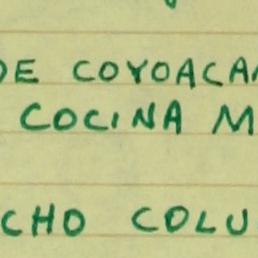 DE COYOACA
COCINA M
CHO COLU